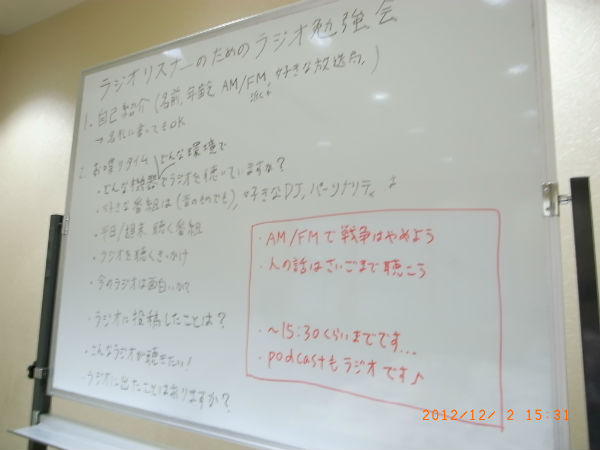 ラジオリスナーのためのラジオ勉強会
1. 自己紹介 (名前, 年齢, AM/FM, 好きな放送局,)
→ 名札に書いてもOK
2. お喋りタイム どんな環境で
・どんな機器でラジオを聴いていますか?
・好きな番組は (昔のものでも), 好きなDJ, パーソナリティ
・平日/週末 聴く番組
・ラジオを聴くきっかけ
・今のラジオは面白いか?
・ラジオに投稿したことは?
・こんなラジオが聴きたい!
・ラジオに出たことはありますか?
・AM/FMで戦争はやめよう
・人の話はさいごまで聴こう
・〜15:30くらいまでです...
・podcastもラジオです♪
2012/12/ 2 15:31